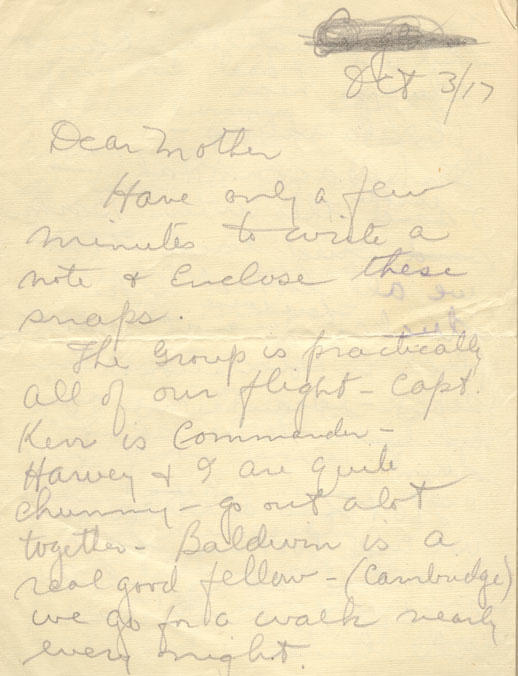 Oct 3/17
Dear Mother
Have only a few
minutes to write a
note & Enclose these
snaps.
The Group is practically
all of our flight - Capt.
Kerr is Commander -
Harvey & I are quite
chummy - go out alot
together - Baldwin is a
real good fellow - (Cambridge)
we go for a walk nearly
every night.